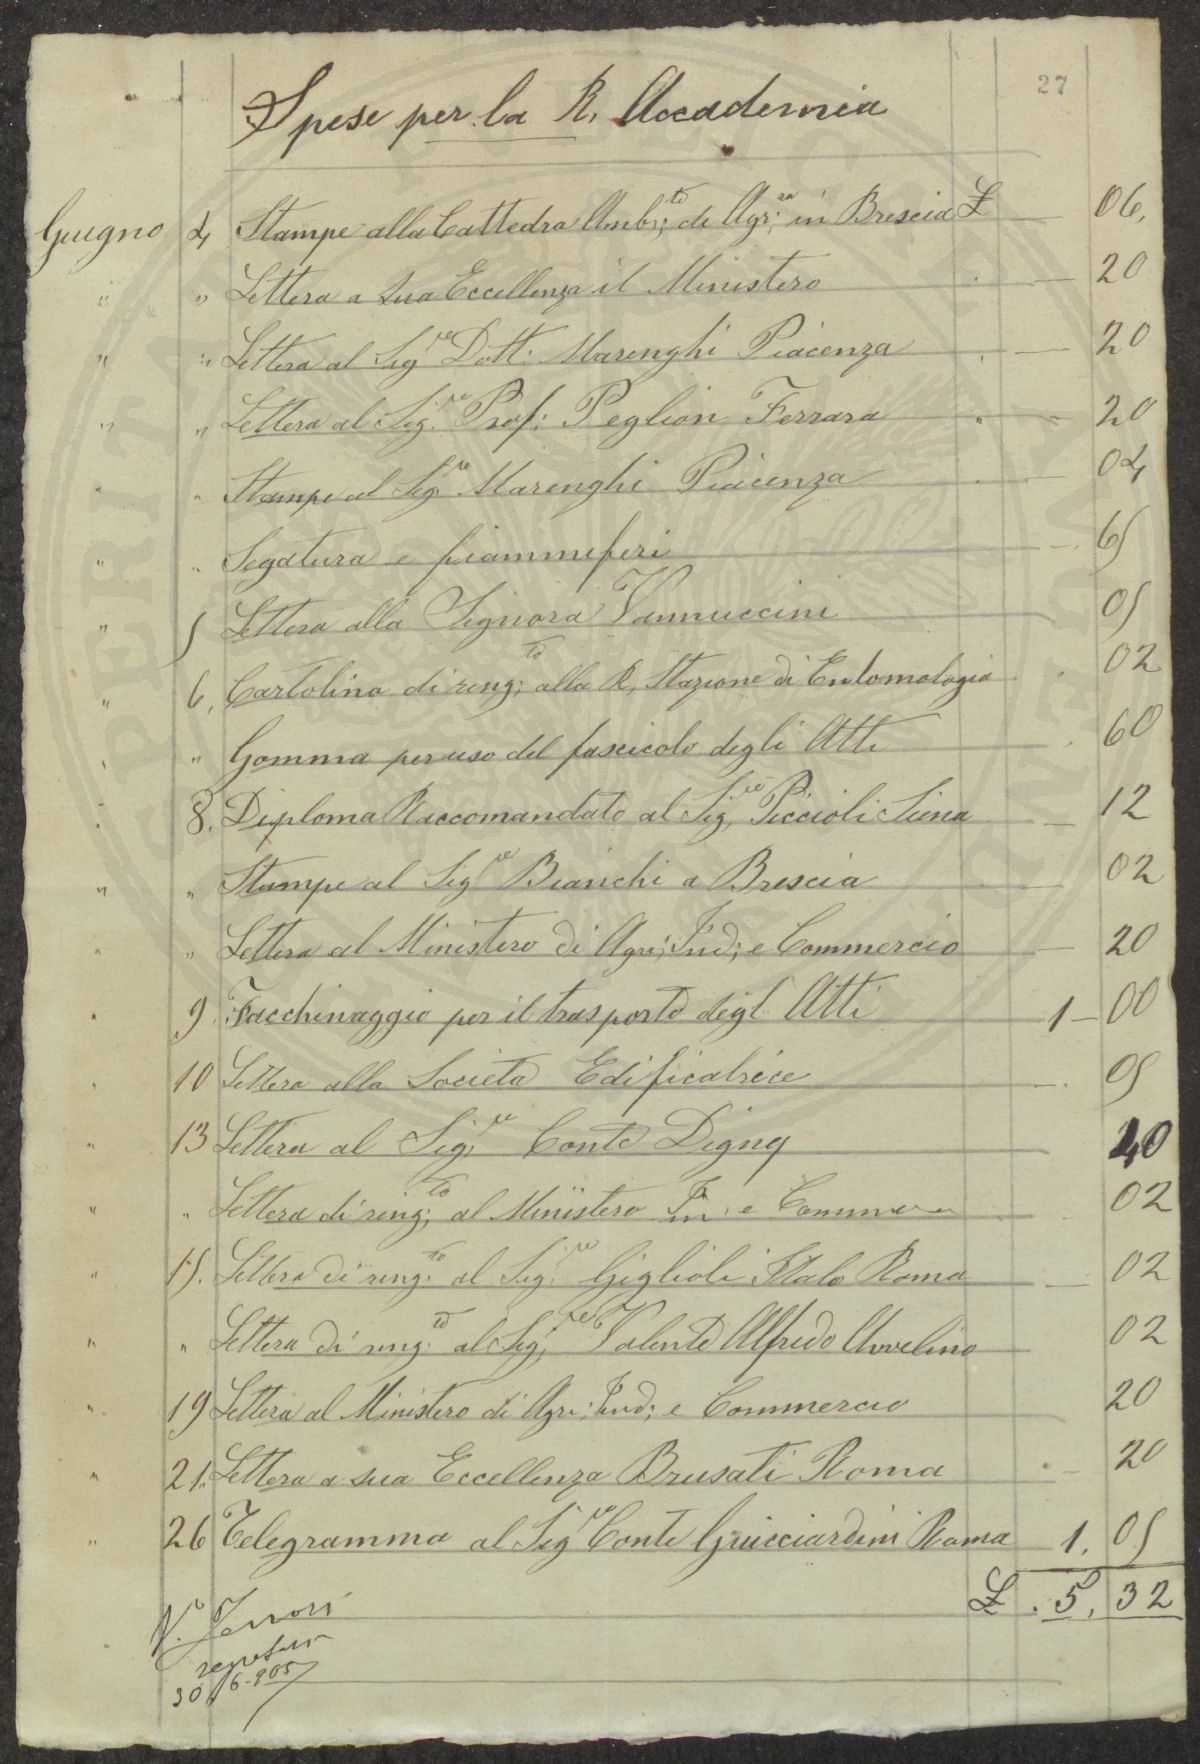 27
Spese per la R. Accademia
Giugno 4 Stampe alla Cattedra Amb:to di Agr:ra in Brescia £ — 06.
" " Lettera a sua Eccellenza il Ministero — 20
" " Lettera al Sigre Dott: Marenghi Piacenza — 20
" " Lettera al Sig.re Prof: Peglion Ferrara " " 20
" " Stampe al Sigre Marenghi Piacenza — 04
" " Segatura e fiammiferi — 65
" 5 Lettera alla Signora Vannuccini 05
" 6. Cartolina di ring:to alla R. Stazione di Entomologia . 02
" " Gomma per uso del fascicolo degli Atti . 60
" 8. Diploma Raccomandato al Sig.re Piccioli Siena — 12
" " Stampe al Sigre Bianchi a Brescia 02
" " Lettera al Ministero di Agri; Ind; e Commercio — 20
" 9 Facchinaggio per il trasporto degl Atti 1 — 00
" 10 Lettera alla Societa Edificatrice — 05
" 13 Lettera al Sig.re Conte Digny 40
" " Lettera di ring;to al Ministero In e Comm 02
" 15. Lettera di ring:to al Sig.re Giglioli Italo Roma — 02
" " Lettera di ring:to al Sig;re Valente Alfredo Avvelino 02
" 19 Lettera al Ministero di Agri; Ind; e Commercio 20
" 21. Lettera a sua Eccellenza Brusati Roma — 20
" 26 Telegramma al Sigre Conte Guicciardini Roma 1. 05
£ . 5, 32
V.o
30 6-905